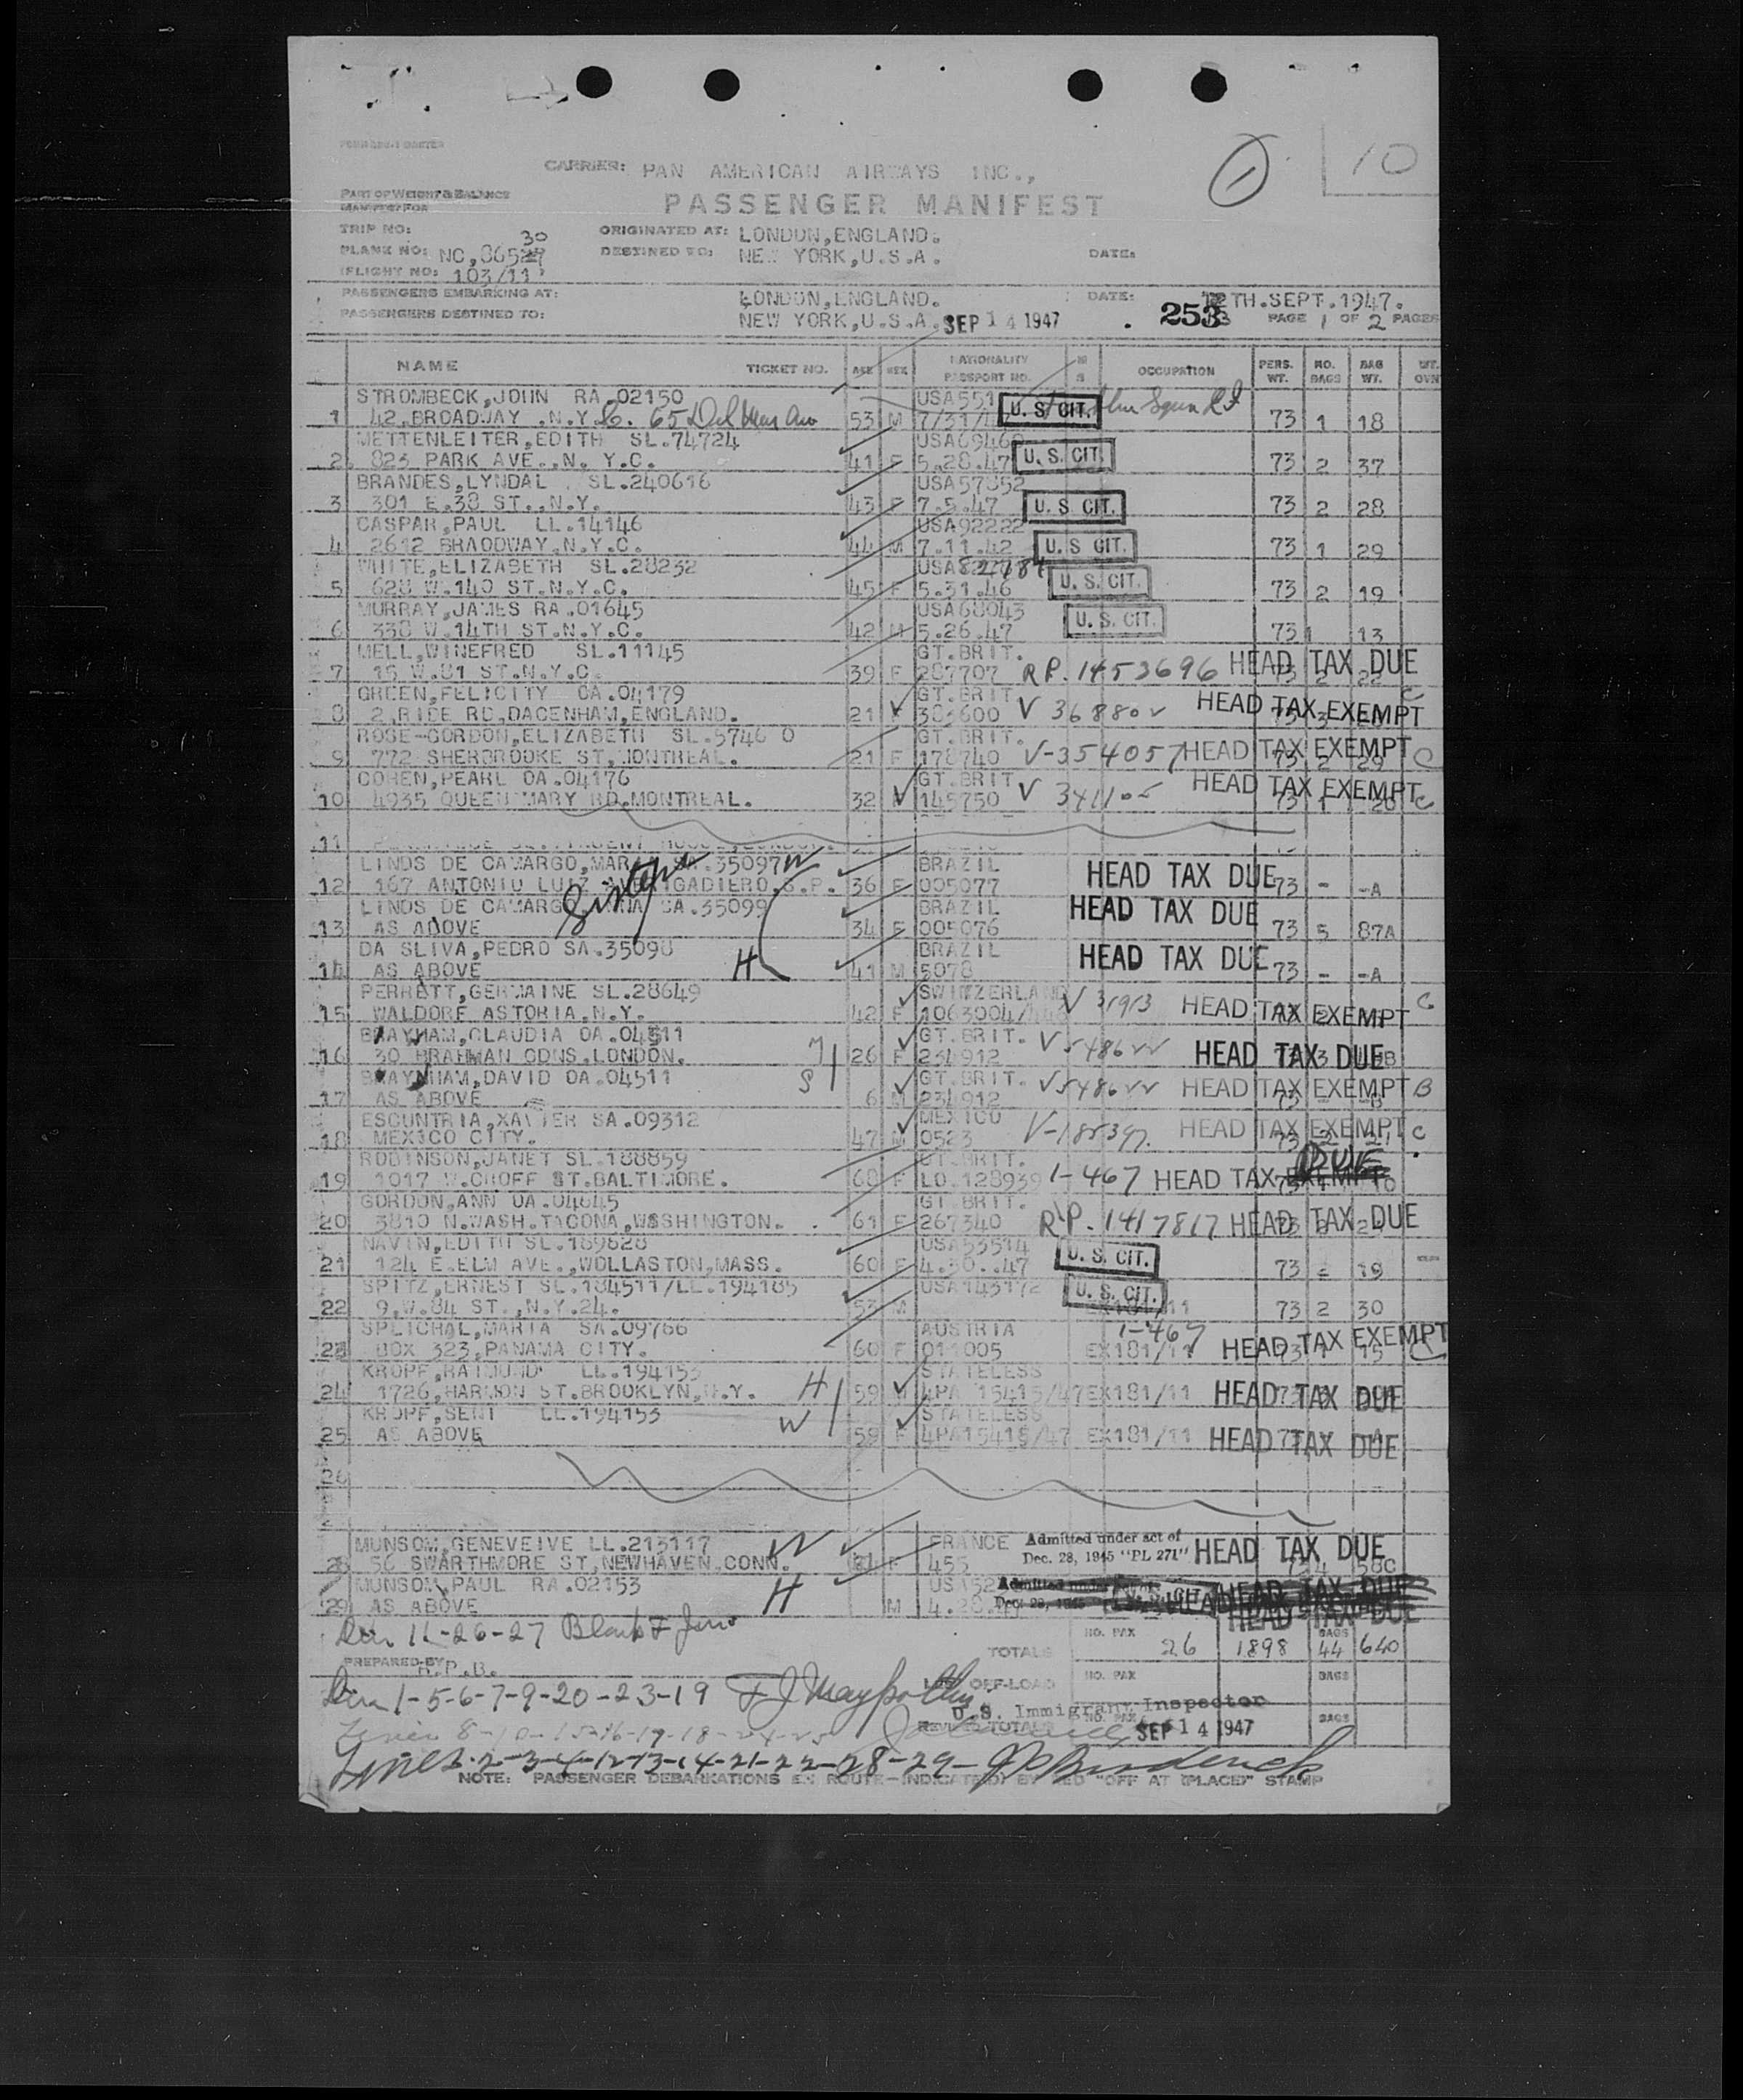 10
CARRIER: PAN AMERICAN AIRWAYS INC.,
PART OF WEIGHT & BALANCE
MANIFEST FOR
PASSENGER MANIFEST
TRIP NO: ORIGINATED AT: LONDON, ENGLAND.
30
PLANE NO: NC,86527 DESTINED TO: NEW YORK, U.S.A. DATE:
FLIGHT NO: 103/11
PASSENGERS EMBARKING AT: LONDON, ENGLAND. DATE: TH.SEPT.1947.
PASSENGERS DESTINED TO: NEW YORK, U.S.A. SEP 14 1947 253 PAGE 1 OF 2 PAGES
NAME TICKET NO. AGE SEX NATIONALITY PASSPORT NO. OCCUPATION PERS. WT. NO. BAGS BAG WT.
STROMBECK, JOHN RA.02150 USA551
1 42, BROADWAY .N.Y. 65 53 M 7/31/ U. S. CIT. 73 1 18
METTENLEITER, EDITH SL.74724 USA69460
2 823 PARK AVE., N. Y.C. 41 F 5.28.47 U. S. CIT. 73 2 37
BRANDES, LYNDAL SL.240616 USA57852
3 301 E.38 ST., N.Y. 43 F 7.5.47 U. S. CIT. 73 2 28
CASPAR, PAUL LL.14146 USA92222
4 2612 BRAODWAY, N.Y.C. 44 M 7.11.42 U. S CIT. 73 1 29
WHITE, ELIZABETH SL.28232 USA
5 628 W.140 ST.N.Y.C. 45 F 5.31.46 U. S. CIT. 73 2 19
MURRAY, JAMES RA.01645 USA68043
6 338 W.14TH ST.N.Y.C. 42 M 5.26.47 U. S. CIT. 73 1 13
MELL, WINEFRED SL.11145 GT.BRIT.
7 15 W.81 ST.N.Y.C. 39 F 287707 RP.1453696 HEAD TAX DUE
GREEN, FELICITY OA.04179 GT.BRIT
8 2, RIDE RD, DAGENHAM, ENGLAND. 21 383600 V 368802 HEAD TAX EXEMPT C
ROSE-GORDON, ELIZABETH SL.5746 0 GT.BRIT.
9 772 SHERBROOKE ST, MONTREAL. 21 F 178740 V-354057 HEAD TAX EXEMPT C
COHEN, PEARL OA.04176 GT.BRIT
10 4935 QUEEN MARY RD.MONTREAL. 32 F 145750 V 341105 HEAD TAX EXEMPT C
11
LINDS DE CAMARGO, SA.35097 W BRAZIL
12 167 ANTONIO LUIZ 36 F 005077 HEAD TAX DUE 73 - -A
LINDS DE CAMARGO, SA.35099 BRAZIL
Sisters
13 AS ABOVE 34 F 005076 HEAD TAX DUE 73 5 87A
DA SLIVA, PEDRO SA.35098 BRAZIL
14 AS ABOVE H 41 M 5078 HEAD TAX DUE 73 - -A
PERRETT, GERMAINE SL.28649 SWITZERLAND
15 WALDORF ASTORIA, N.Y. 42 F V 31913 HEAD TAX EXEMPT C
CLAUDIA OA.04511 GT.BRIT.
16 LONDON. 26 F 234912 V 548622 HEAD TAX DUE
DAVID OA.04511 GT.BRIT.
17 AS ABOVE S 6 M 234912 V548622 HEAD TAX EXEMPT B
ESCUNTRIA, XAVIER SA.09312 MEXICO
18 MEXICO CITY. 47 M 0523 HEAD TAX EXEMPT C
ROBINSON, JANET SL.188859 GT.BRIT.
19 1017 W.CROFF ST.BALTIMORE. 60 F LO.128939 1-467 HEAD TAX DUE
GORDON, ANN OA.04645 GT BRIT.
20 3810 N.WASH.TACONA, WASHINGTON. 61 F 267340 RP.1417817 HEAD TAX DUE
NAVIN, EDITH SL.189628 USA53514
21 124 E.ELM AVE., WOLLASTON, MASS. 60 F 4.30..47 U. S. CIT. 73 2 19
SPITZ, ERNEST SL.184511/LL.194185 USA143172
22 9, W.84 ST., N.Y.24. 53 M U. S. CIT. 73 2 30
SPLICHAL, MARIA SA.09766 AUSTRIA 1-467
23 BOX 323, PANAMA CITY. 60 F 011005 EX181/11 HEAD TAX EXEMPT C
KROPF, RAIMUND LL.194153 STATELESS
24 1726, HARMON ST.BROOKLYN, N.Y. H 59 M 4PA 15415/47 EX181/11 HEAD TAX DUE
KROPF, SENI LL.194153 W STATELESS
25 AS ABOVE 59 F 4PA15416/47 EX181/11 HEAD TAX DUE
26
MUNSOM, GENEVEIVE LL.213117 W FRANCE Admitted under act of HEAD TAX DUE
28 56 SWARTHMORE ST, NEWHAVEN.CONN. F 455 Dec. 28, 1945 "PL 271" 56C
MUNSOM, PAUL RA.02153 H
29 AS ABOVE M
11-26-27 Blank
TOTALS NO. PAX 26 1898 BAGS 44 640
PREPARED BY
1-5-6-7-9-20-23-19
OFF-LOAD NO. PAX BAGS
U.S. Immigrant Inspector
REVISED TOTALS NO. PAX SEP 14 1947 BAGS
Lines 2-3-4-12-13-14-21-22-28-29-
NOTE: PASSENGER DEBARKATIONS EN ROUTE-INDICATED BY RED "OFF AT (PLACE)" STAMP